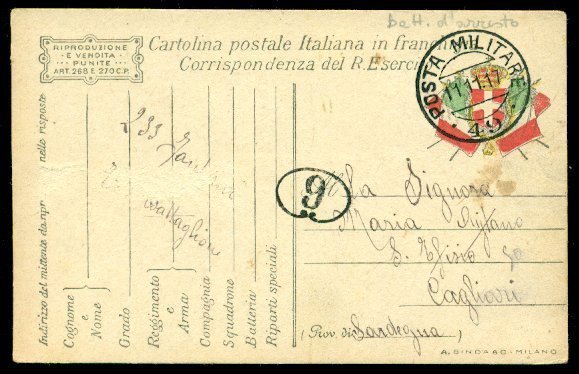 Batt. d'arresto
RIPRODUZIONE
E VENDITA
PUNITE
ART. 268 E 270 C.P.
Cartolina postale Italiana in franchi
Corrispondenza del R. Eserci
POSTA MILITARE
11.11.17
49
Indirizzo del mittente da ripr nello risposte
Cognome
e
Nome
Grado
Reggimento
e
Arma
Compagnia
Squadrone
Batteria
Riparti speciali
233
battaglione
9
Alla Signora
Maria
S. Efisio 50
Cagliari
(Prov. di Sardegna)
A. BINDA & C - MILANO